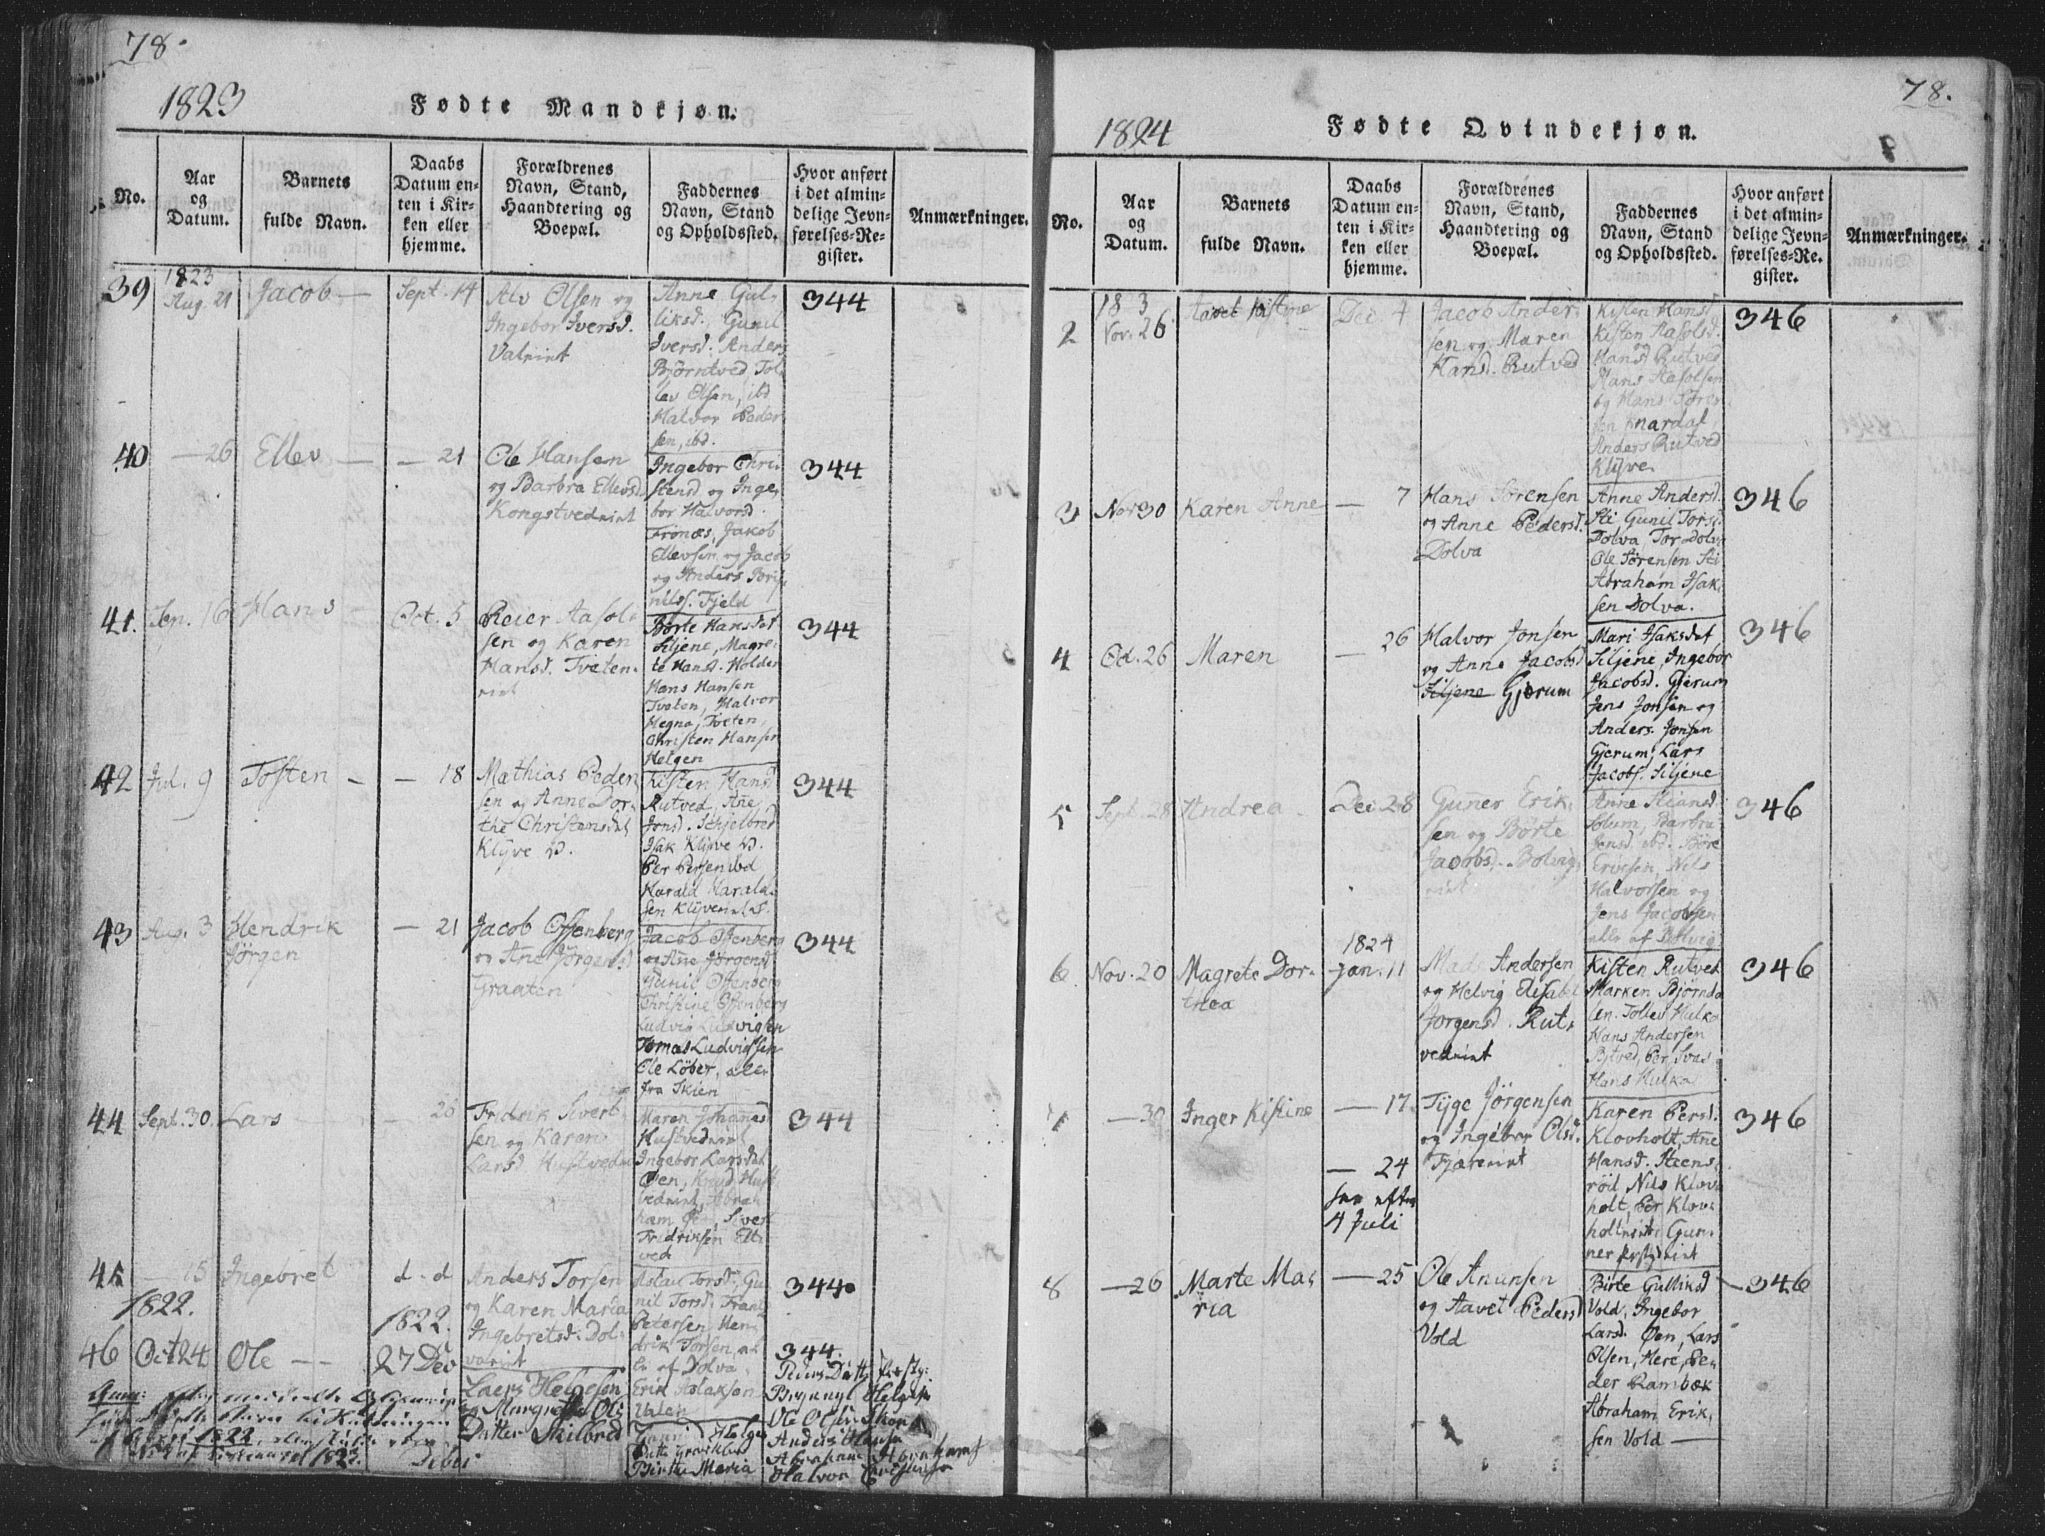 78.
1823
Fødte Mandkjøn.
No.
Aar
og
Datum.
Barnets
fulde Navn.
Daabs
Datum en-
ten i Kir-
ken eller
hjemme.
Forældrenes
Navn, Stand,
Haandtering og
Boepæl.
Faddernes
Navn, Stand
og Opholdssted.
Hvor anført
i det almin-
delige Jevn-
førelses-Re-
gister.
Anmærkninger.
39
1823
Aug. 21
Jacob
Sept. 14
Alv Olsen og
Ingebor Iversd.
Valeiet
Anne Gul-
liksd. Gunil
Iversd. Anders
Bjørntved Tol-
lev Olsen, ibd
Halvor Peder-
sen, ibd.
344
40
— 26
Ellev
— 21
Ole Hansen
og Barbra Ellevsd
Kongstvedeiet
Ingebor Chri-
stensd og Inge-
bor Halvorsd.
Fronæs, Jakob
Ellevsen og Jacob
og Anders
Fjeld
344
41.
Sep. 16
Hans
Oct. 5
Reier Aasol-
sen og Karen
Hansd. Tveten-
eiet
Børte Hansdat
Siljene, Magre-
te Hansd. Holden
Hans Hansen
Tveten, Halvor
Megna, Tveten,
Christen Hansen
Helgen
344
42
Jul. 9
Tosten
— 18
Mathias Peder-
sen og Anne Dor-
the Christensdat
Klyve
Kisten Hansd
Rutved, Ane
Jonsd. Skjelbred
Isak Klyve
Per Persen ibd
Harald Harald-
sen Klyveeiet
344
43
Aug. 3
Hendrik
Jørgen
— 21
Jacob Ossenberg
og Ane Jørgensd
Graaten
Jacob Ossenberg
og Ane Jørgensd
Gunil Ossenberg
Christine Ossenberg
Ludvig Ludvigsen
Tomas Ludvigsen
Ole Løber, alle
fra Skien
344
44
Sept. 30.
Lars
— 26
Fridrik Sivert-
sen og Karen
Larsd Hustvedei
Maren Johanesd
Hustvedeiet
Ingebor Larsdat
Øen, Knud Hust-
vedeiet, Abra-
ham Øen, Sivert
Fridriksen Elt-
ved
344
45
— 15
Ingebret
d - d
Anders Torsen
og Karen Maria
Ingebretsd. Dol-
vaeiet
Aslau Torsd. Gu-
nil Torsd. Frants
Petersen, Hen-
drik Torsen, al-
le af Dolva
Erik Aslaksen
Valen
344.
1822.
46
Oct 24
Ole
1822.
27 Dec
Laers Helgeson
og Margrethe Ols
Datter Skilbred
344.
Ole Olsen
Halvor
Birthe Maria
78.
1824
Fødte Qvindekjøn.
No.
Aar
og
Datum.
Barnets
fulde Navn.
Daabs
Datum en-
ten i Kir-
ken eller
hjemme.
Forældrenes
Navn, Stand,
Haandtering og
Boepæl.
Faddernes
Navn, Stand
og Opholdssted.
Hvor anført
i det almin-
delige Jevn-
førelses-Re-
gister.
Anmærkninger.
2
18 3
Nov. 26
Aavet Kistine
Dec. 4
Jacob Ander-
sen og Maren
Hansd. Rutved
Kisten Hansd
Kisten Aasolsd.
og
Hansd Rutved
Hans Aasolsen
og Hans Søren-
sen Knardal,
Anders Rutved
Klyve
346
3
Nov 30
Karen Anne
— 7
Hans Sørensen
og Anne Pedersd.
Dolva
Anne Andersd.
Sti Gunil Torsd.
Dolva Tor Dolva
Ole Sørensen Sti
Abraham Isak-
sen Dolva.
346
4
Oct. 26
Maren
— 26
Halvor Jonsen
og Anne Jacobsd
Siljene Gjerum
Mari Isaksdat
Siljene, Ingebor
Jacobsd. Gjerum
Jens Jonsen og
Anders Jonsen
Gjerum, Lars
Jacobs. Siljene
346
5
Sept. 28
Andrea
Dec 28
Guner Erik-
sen og Børte
Jacobsd. Bolvig-
eiet
Anne Stiansd
Solum, Barbra
Jensd. ibd. Børe
Ericsen, Nils
Halvorsen og
Jens Jacobsen
alle af Bolvig
346
6
Nov. 20
Magrete Dor-
thea
1824
Jan. 11
Mads Andersen
og Helvig Elisabet
Jørgensd. Rut-
vedeiet
Kisten Rutved
Marken Bjørnda-
len. Tollev Hulka
Hans Andersen
Bjtved, Per Svas
Hans Hulka
346
7
— 30
Inger Kistine
— 17
— 24
see efter
4 Juli
Tyge Jørgensen
og Ingebor Olsd.
Fjæreeiet
Karen Persd.
Klovholt, Ane
Hansd. Steens-
røil, Nils Klov-
holt, Per Klov-
holteiet, Gun-
ner
346
8
— 26
Marte Ma-
ria
— 25
Ole Anunsen
og Aavet Pedersd
Vold
Birte Gulliksd
Vold, Ingebor
Larsd. Øen, Lars
Olsen, Here, Pe-
der Rambæk
Abraham Erik-
sen Vold —
346